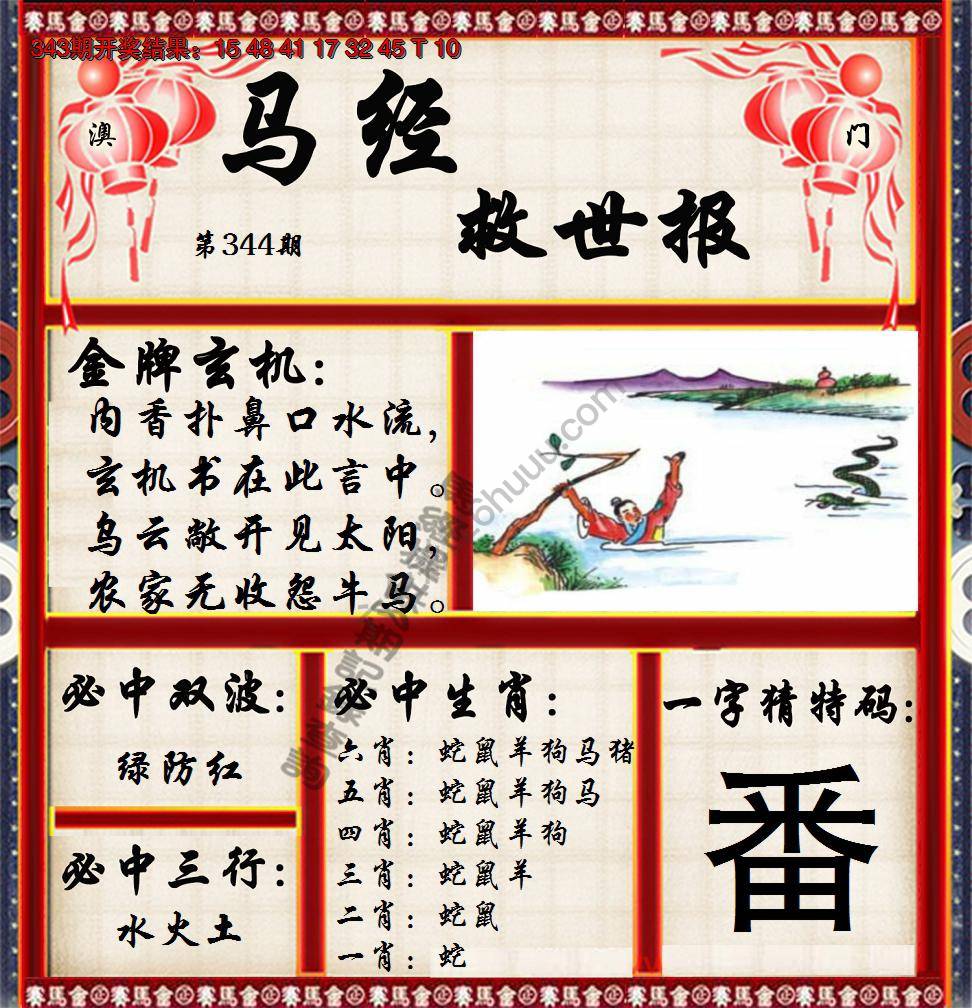 赛馬会
343期开奖结果：15 48 41 17 32 45 T 10
澳 门
马经
救世报
第344期
金牌玄机：
内香扑鼻口水流，
玄机书在此言中。
乌云敞开见太阳，
农家无收怨牛马。
必中双波：
绿防红
必中三行：
水火土
必中生肖：
六肖：蛇鼠羊狗马猪
五肖：蛇鼠羊狗马
四肖：蛇鼠羊狗
三肖：蛇鼠羊
二肖：蛇鼠
一肖：蛇
一字猜特码：
番